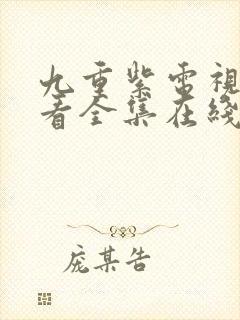 九重紫电視
看全集在綫
庞某告